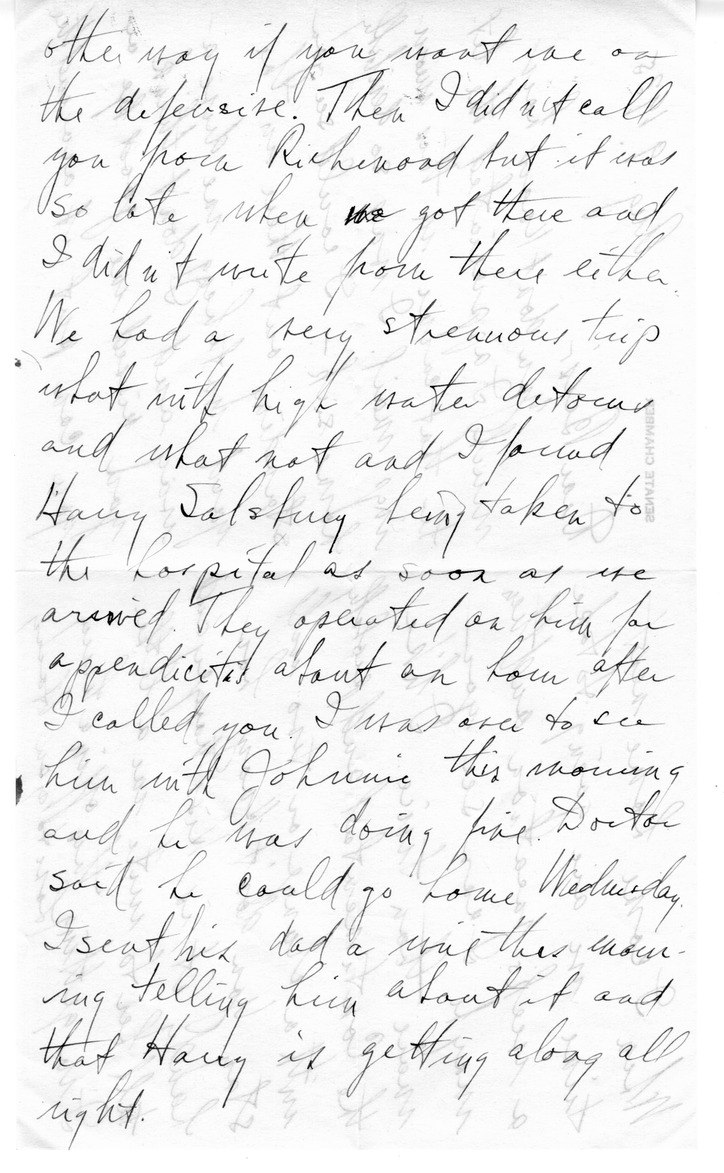 other way if you want me on
the defensive. Then I didn't call
you from Richmond but it was
so late when we got there and
I didn't write from there either.
We had a very strenuous trip
what with high water detours
and what not and I found
Harry Salsbury being taken to
the hospital as soon as we
arrived. They operated on him for
appendicitis about an hour after
I called you. I was over to see
him with Johnnie this morning
and he was doing fine. Doctor
said he could go home Wednesday.
I sent his dad a wire this morn-
ing telling him about it and
that Harry is getting along all
right.
SENATE CHAMBER